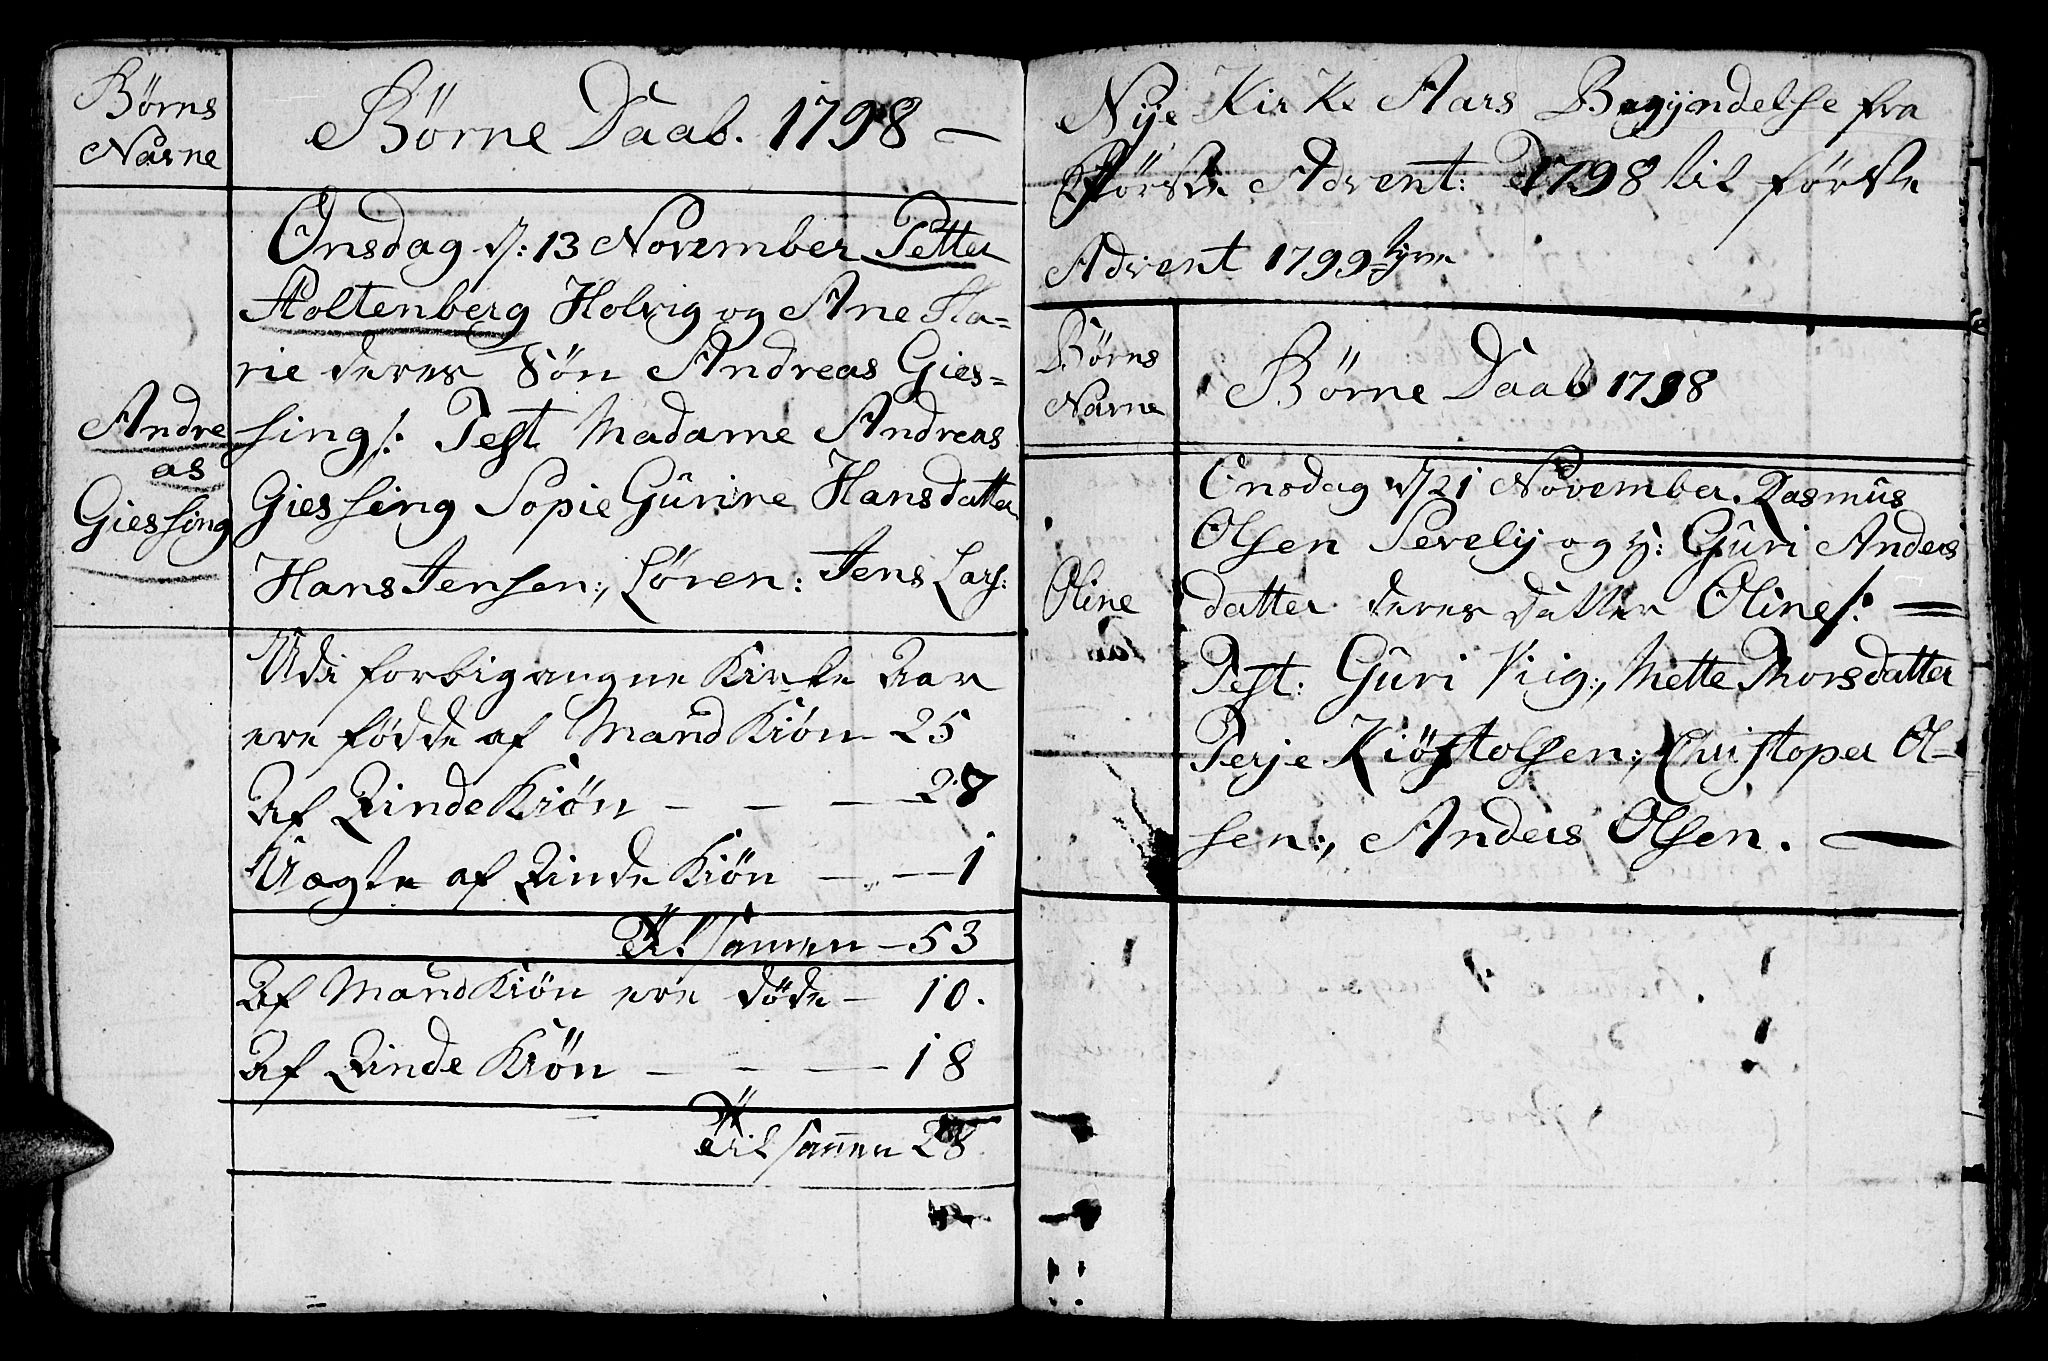 Børns
Navne
Børne Daab. 1798 –
Onsdag d: 13 November Petter
Stoltenberg Holvig og Ane Ka=
rie deres Søn Andreas Gies=
sing /: Test Madame Andreas
Giessing Sopie Gurine Hansdatter
Hans Jensen:, Søren: Jens Lars:
Andre
as
Giessing
Udi forbigangne Kirke Aar
ere fødde af Mand Kiön 25
Af Qinde Kiön – – – 28
Uægte af Qinde Kiön – – 1
Til sammen – 53
Af Mand Kiön ere döde – 10.
Af Qinde Kiön – – – 18
Til samen 28
Nye Kirke Aars Begyndelse fra
Første Advent: 1798 til første
Advent 1799
Børns
Navne
Børne Daab 1798
Onsdag d 21 November. Rasmus
Olsen Sevely og H: Guri Anders
datter deres datter Oline /: =
Test: Guri Viig:, Mette Thorsdatter
Terje Kiöstolsen:, Christoper Ol-
sen:, Anders Olsen. –
Oline